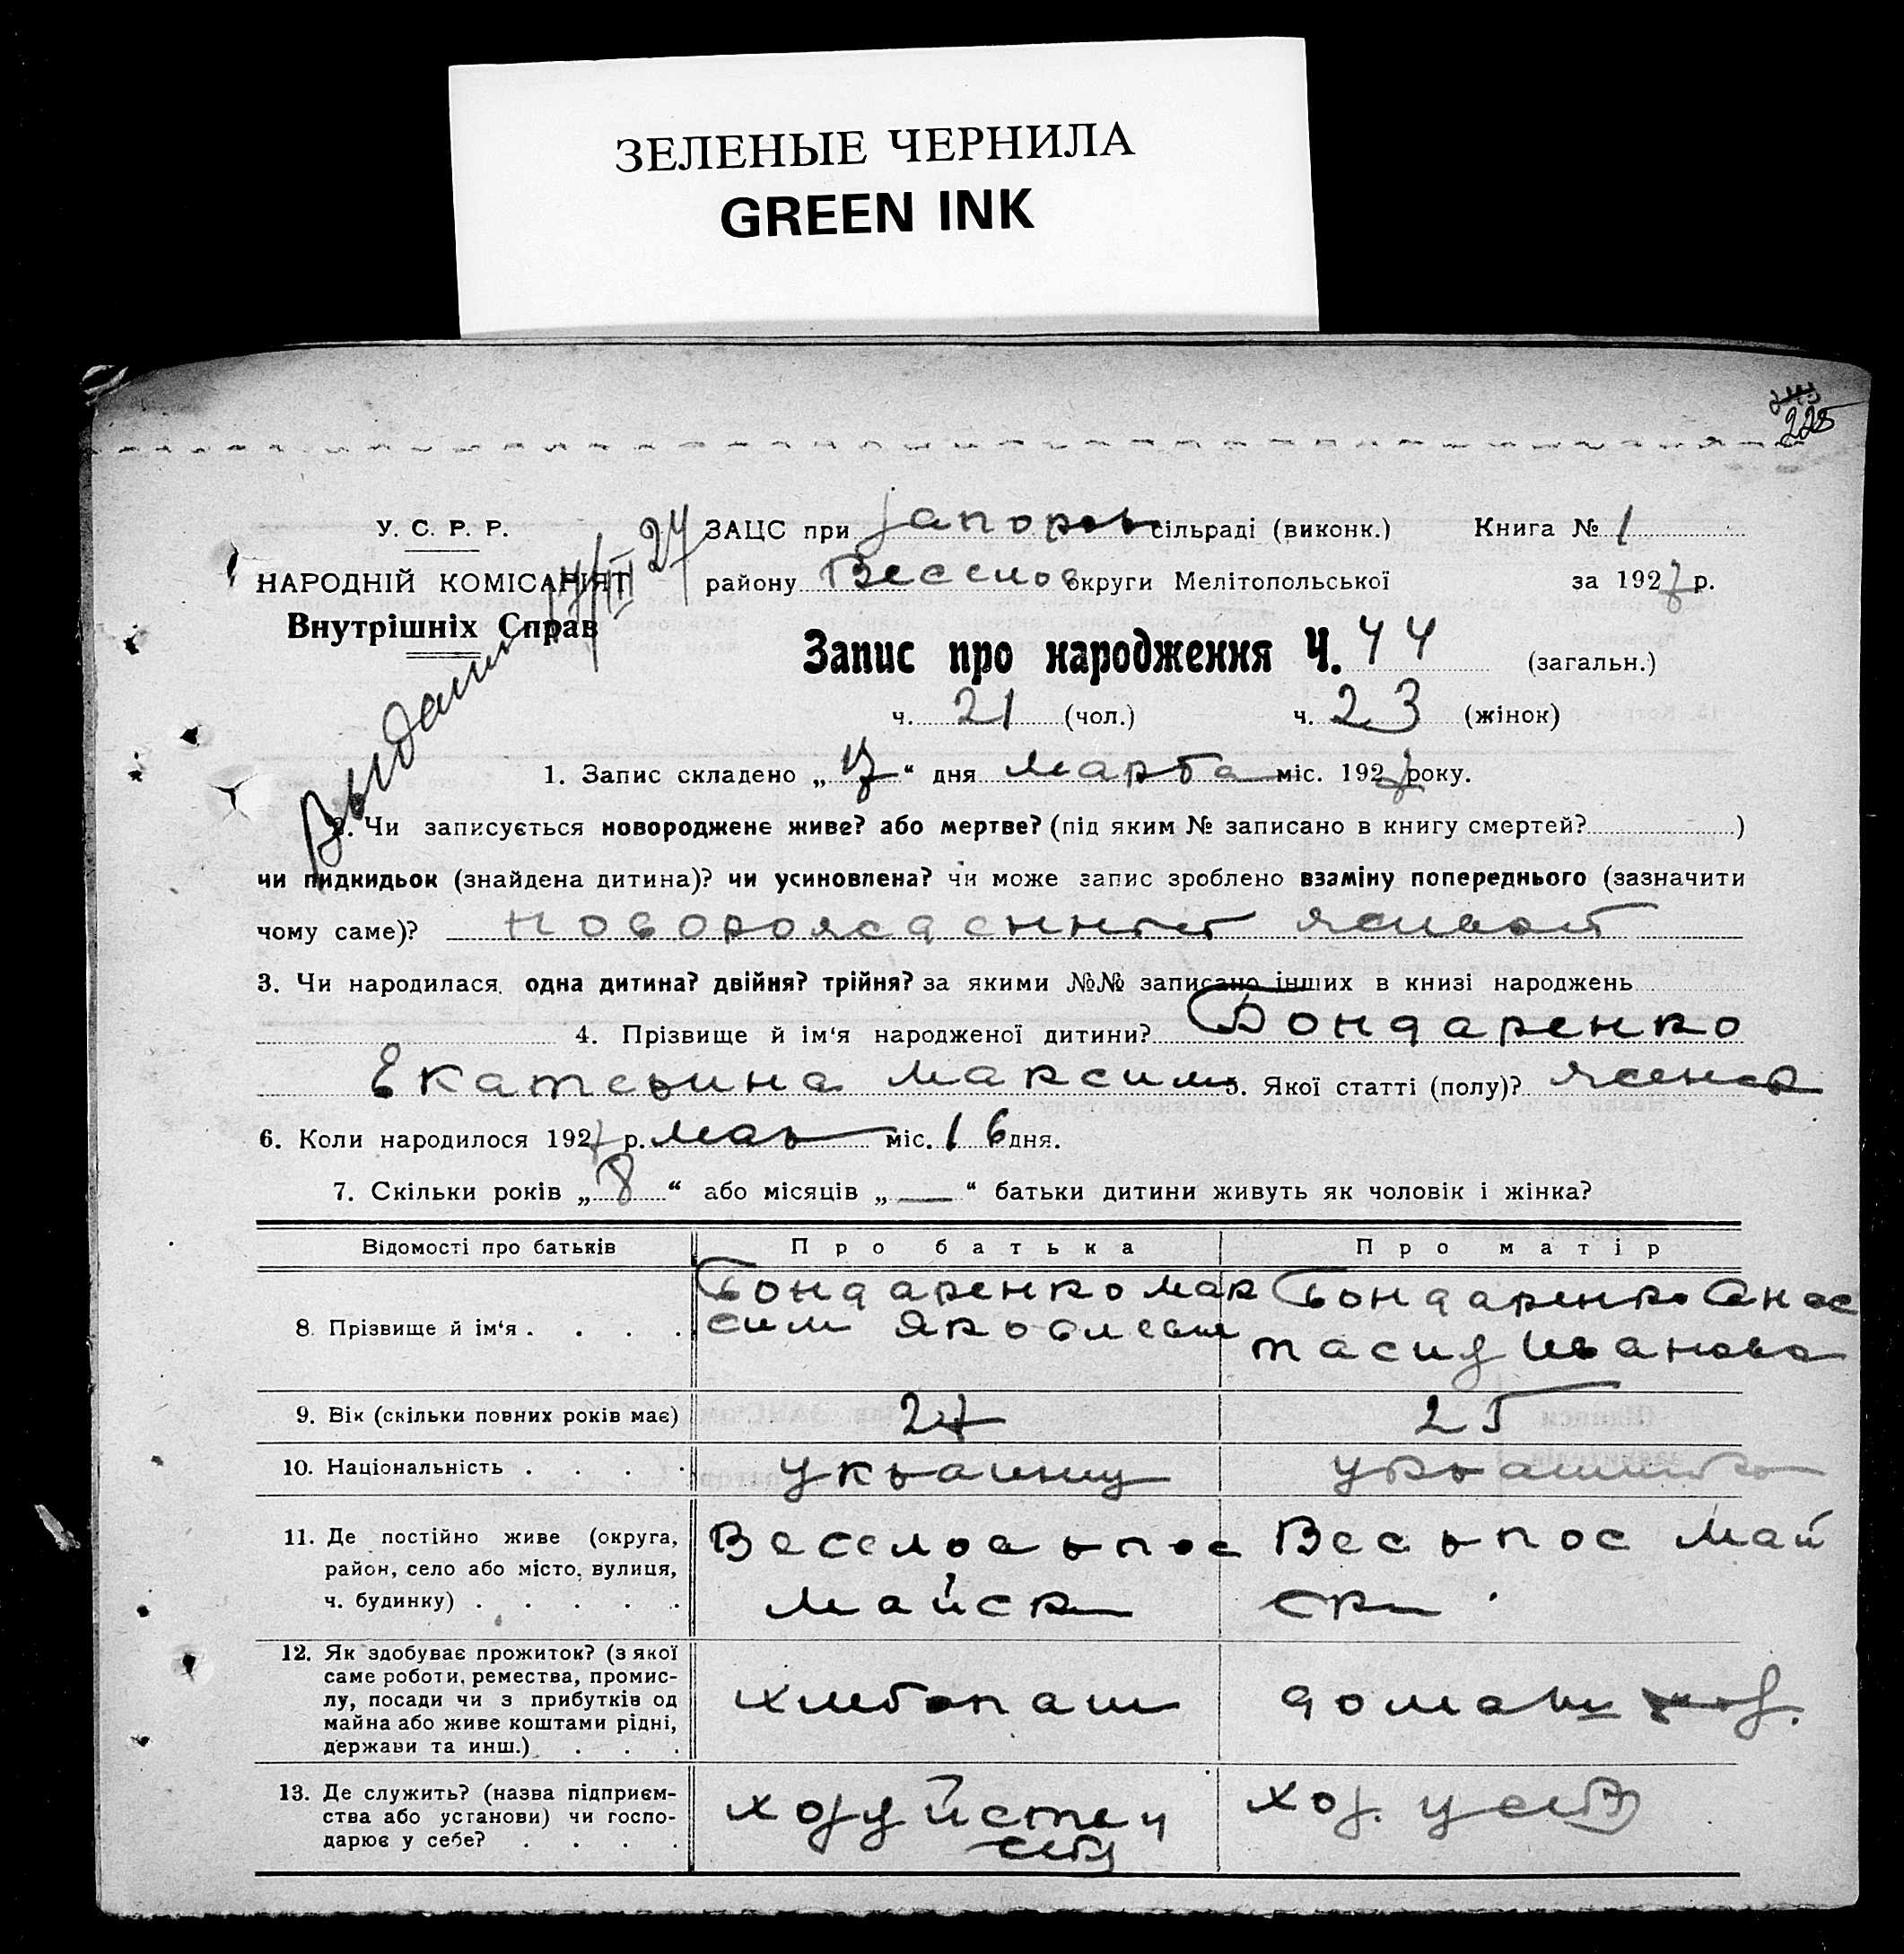 ЗЕЛЕНЫЕ ЧЕРНИЛА
GREEN INK
225
У. С. Р. Р.
НАРОДНІЙ КОМІСАРІЯТ
Внутрішніх Справ
ЗАЦС при Запоров сільраді (виконк.) Книга № 1
району Веселов округи Мелітопольської за 1927 р.
Запис про народження Ч. 44 (загальн.)
ч. 21 (чол.) ч. 23 (жінок)
1. Запис складено „17“ дня марта міс. 1927 року.
2. Чи записується новороджене живе? або мертве? (під яким № записано в книгу смертей? )
чи підкидьок (знайдена дитина)? чи усиновлена? чи може запис зроблено взаміну попереднього (зазначити
чому саме)? новорожденный живой
3. Чи народилася одна дитина? двійня? трійня? за якими №№ записано інших в книзі народжень
4. Прізвище й ім'я народженої дитини? Бондаренко
Екатерина Максим 5. Якої статті (полу)? женск
6. Коли народилося 1927 р. мар міс. 16 дня.
7. Скільки років „8“ або місяців „—“ батьки дитини живуть як чоловік і жінка?
Відомості про батьків Про батька Про матір
8. Прізвище й ім'я . . . . Бондаренко Мак
сим Яковлевич
Бондаренко Анас
тасия Иванова
9. Вік (скільки повних років має) 27 25
10. Національність . . . . украинец украинка
11. Де постійно живе (округа,
район, село або місто, вулиця,
ч. будинку) . . . . .
Веселов р пос
Майск
Вес р пос Май
ск
12. Як здобуває прожиток? (з якої
саме роботи, ремества, промис-
лу, посади чи з прибутків од
майна або живе коштами рідні,
держави та инш.) . . .
хлебопаш домаш хоз.
13. Де служить? (назва підприєм-
ства або установи) чи госпо-
дарює у себе? . . . .
хозуйство у
себя
хоз. у себя